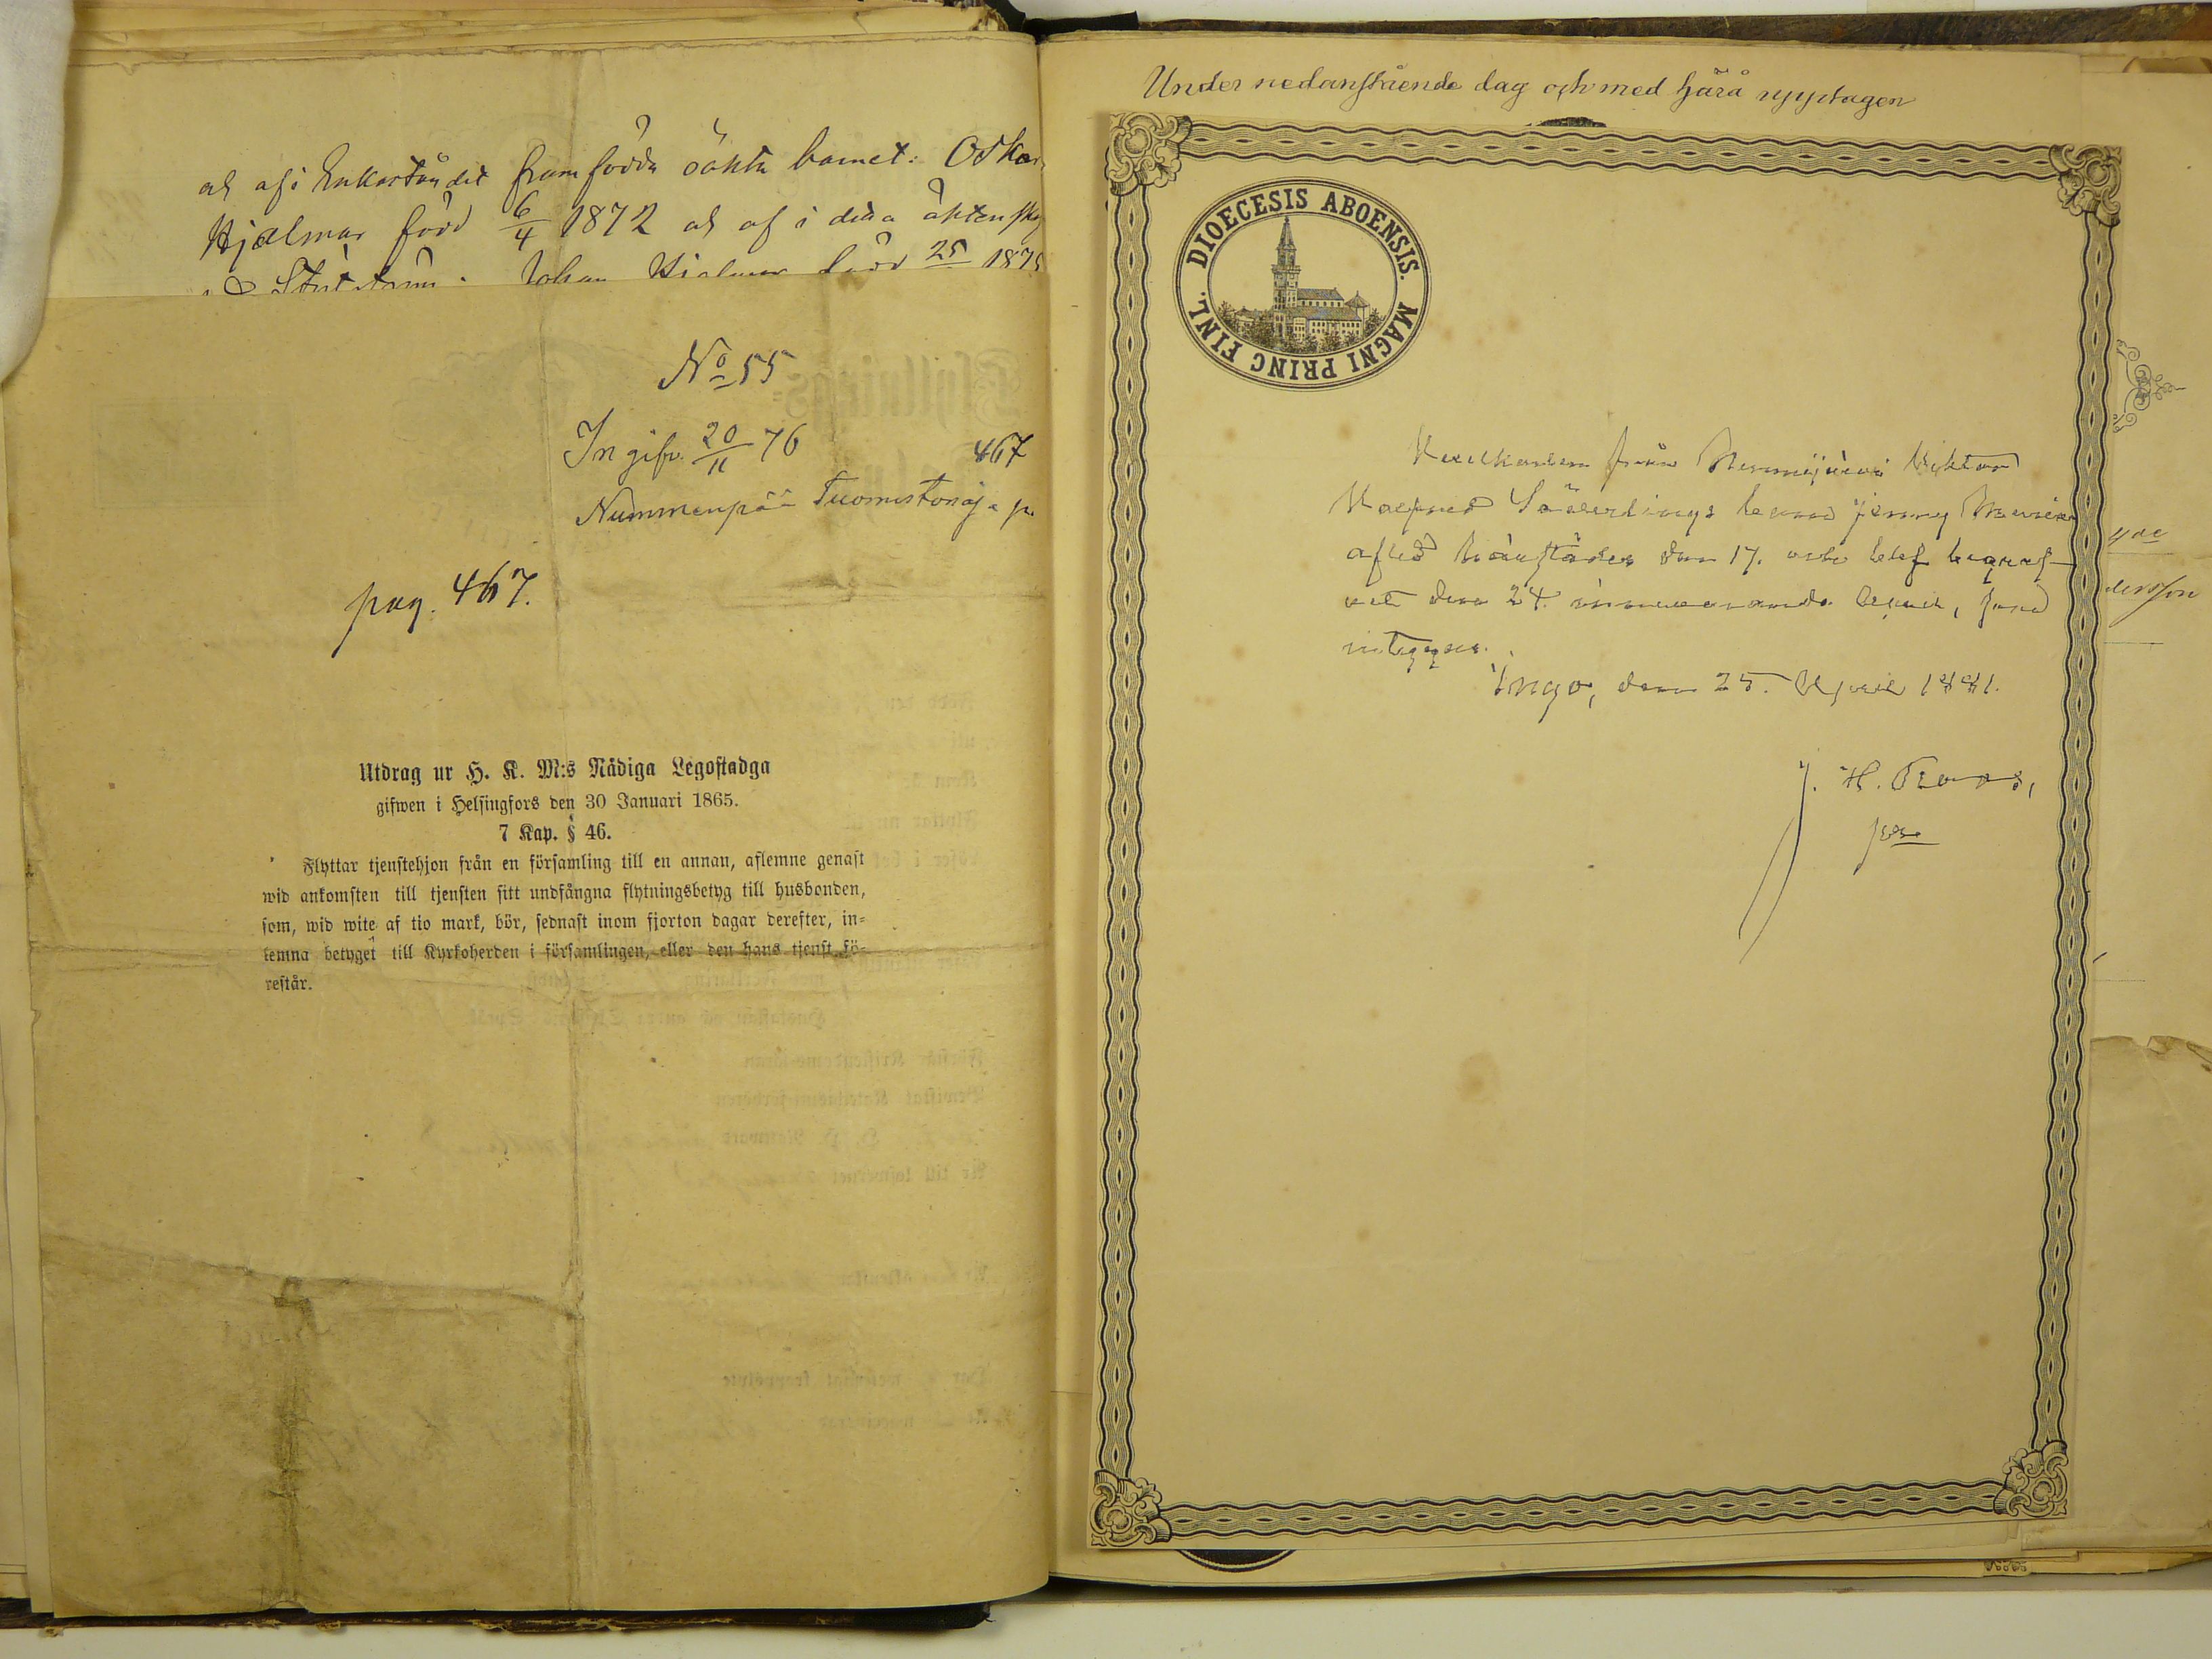 och af i Enkeståndet framfödda oäkta barnet: Oskar
Hjalmar född 6/4 1872 och af i detta äktenskap
Johan Hjalmar född 25 187
No 55
Ingifv. 20/11 76
467
Nummenpää Tuomistonoja
pag. 467.
Utdrag ur H. K. M:s Nådiga Legostadga
gifwen i Helsingfors den 30 Januari 1865.
7 Kap. § 46.
Flyttar tjenstehjon från en församling till en annan, aflemne genast
wid ankomsten till tjensten sitt undfångna flytningsbetyg till husbonden,
som, wid wite af tio mark, bör, sednast inom fjorton dagar derefter, in=
lemna betyget till Kyrkoherden i församlingen, eller den hans tjenst fö-
restår.
Under nedanstående dag och med
DIOECESIS ABOENSIS. MAGNI PRINC FINL.
från Nurmijärvi Viktor
Söderlings barn Jenny Maria
afled härstädes den 17. och blef begraf-
vet den 24. innevarande April, som
intygas.
Ingo, den 25. April 1881.
J. H.